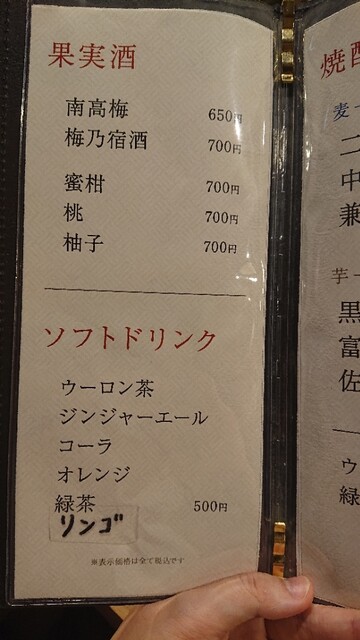 果実酒
南高梅 650円
梅乃宿酒 700円
蜜柑 700円
桃 700円
柚子 700円
ソフトドリンク
ウーロン茶
ジンジャーエール
コーラ
オレンジ
緑茶 500円
リンゴ
※表示価格は全て税込です
焼酎
麦
二
中
兼
芋
黒
富
佐
ウ
緑